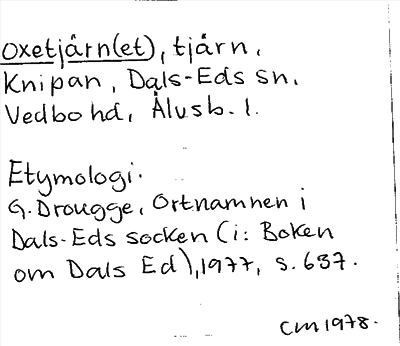 Oxetjärn(et), tjärn,
Knipan, Dals-Eds sn.
Vedbo hd, Älvsb. l.
Etymologi.
G. Drougge, Ortnamnen i
Dals-Eds socken (i: Boken
om Dals Ed), 1977, s. 637.
CM 1978.